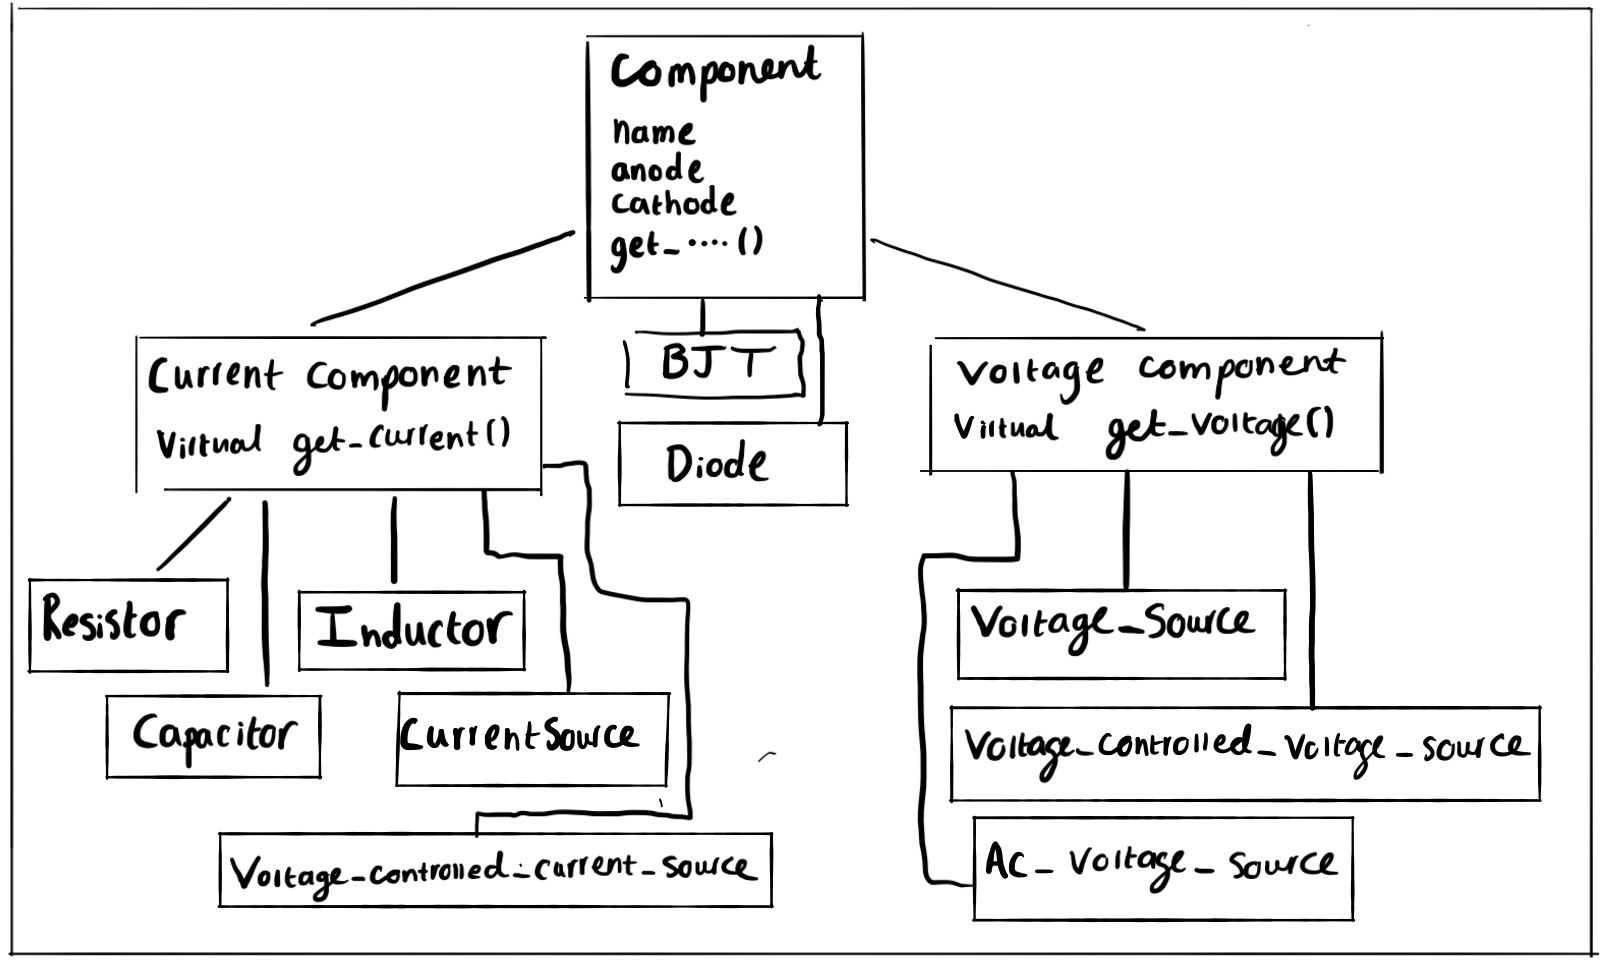 Component
name
anode
cathode
get_....()
BJT
Diode
Current Component
Virtual get_current()
Voltage component
Virtual get_voltage()
Resistor
Inductor
Capacitor
CurrentSource
Voltage_controlled_current_source
Voltage_Source
Voltage_controlled_voltage_source
AC_voltage_source